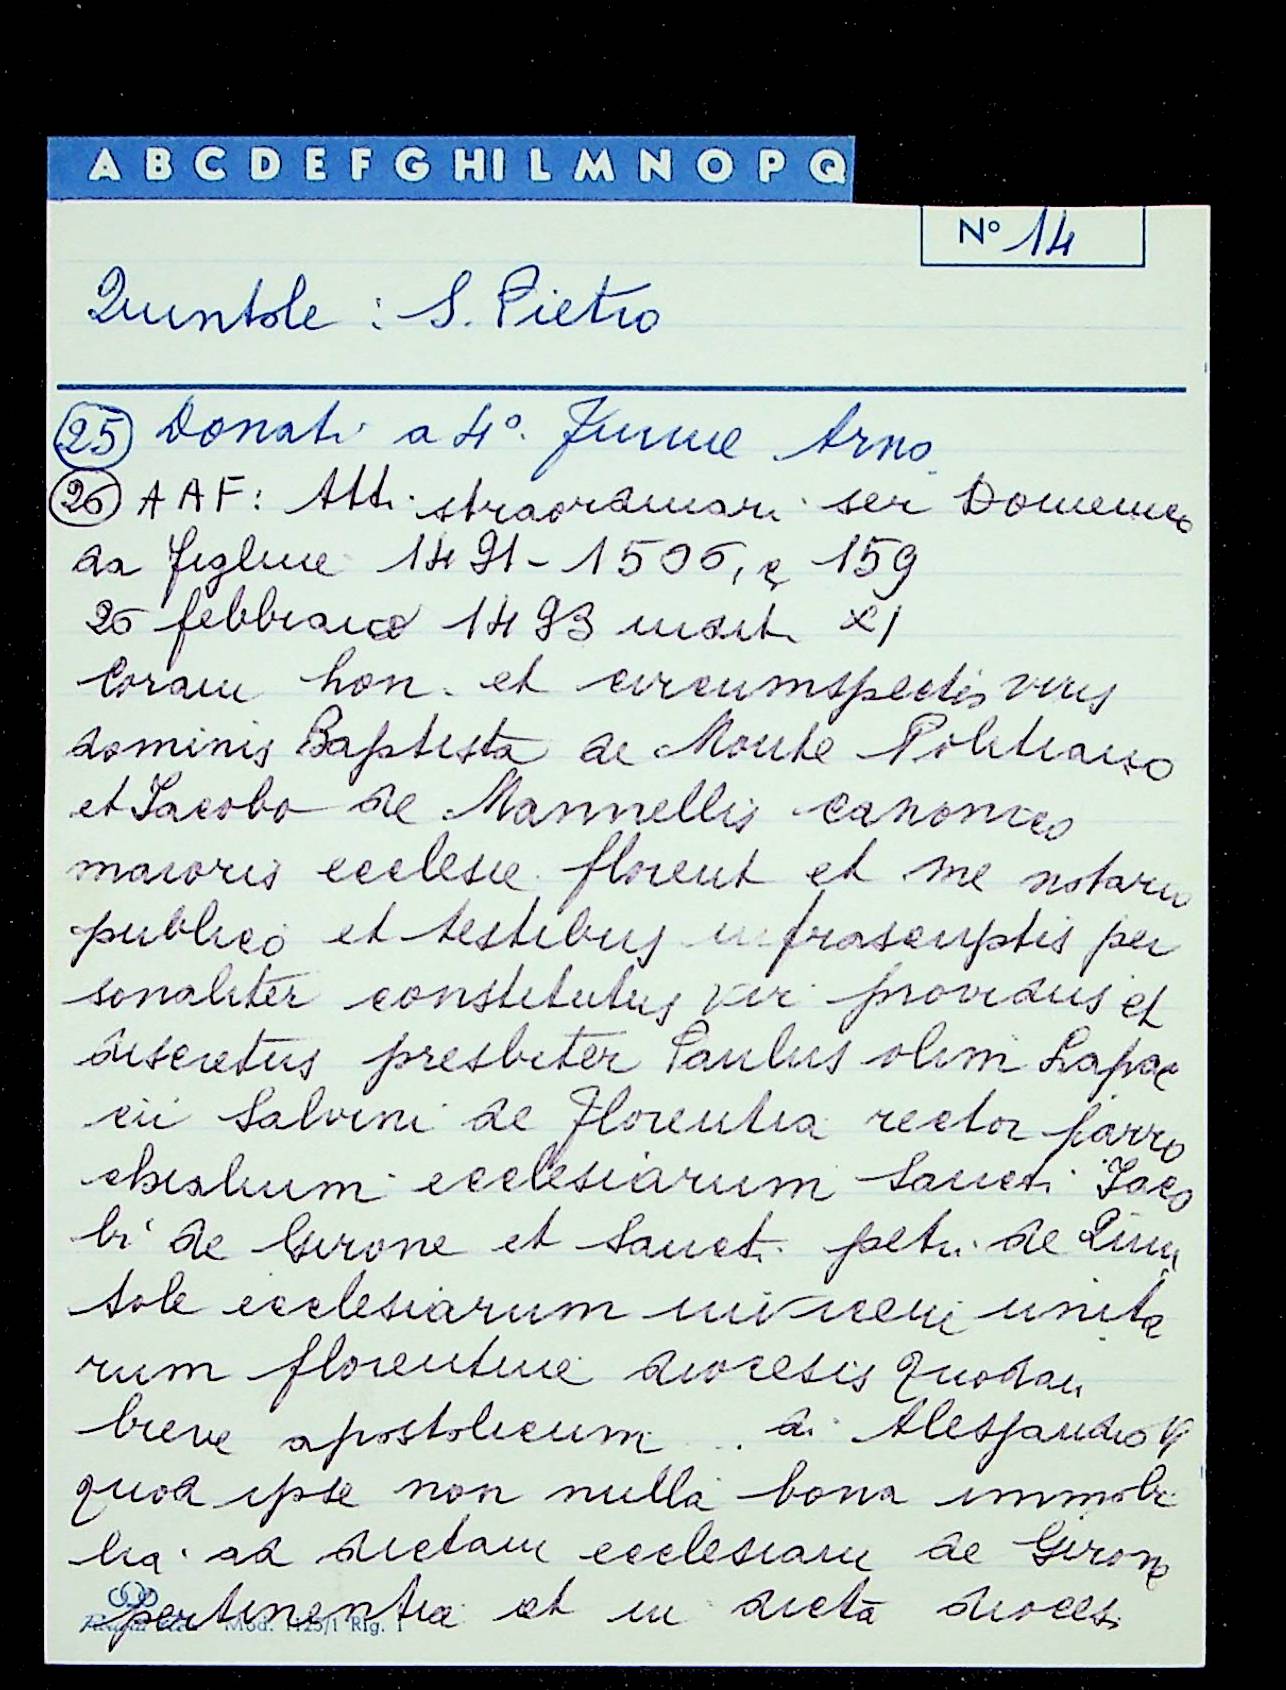 A B C D E F G HI L M N O P Q
N° 14
Quintole : S. Pietro
25 Donati a 4°. Fiume Arno
26 A A F: Atti straordinari ser Domenico
da Figline 1491-1506, c 159
26 febbraio 1493 indit. XI
Coram hon. et circumspectis viris
dominis Baptista de Monte Politiano
et Iacobo de Mannellis canonico
maioris ecclesie florent et me notario
publico et testibus infrascriptis per
sonaliter constitutus vir providus et
discretus presbiter Paulus olim Lapac
cii Salvini de Florentia rector parro
chialium ecclesiarum Sancti Iaco
bi de Girone et Sancti petri de Quin
tole ecclesiarum invicem unita
rum florentine diocesis quodam
breve apostolicum ... di Alessandro VI
quod ipse non nulla bona immobi
lia ad dictam ecclesiam de Girone
pertinentia et in dicta diocesi
Mod. 1125/1 Rig. 1